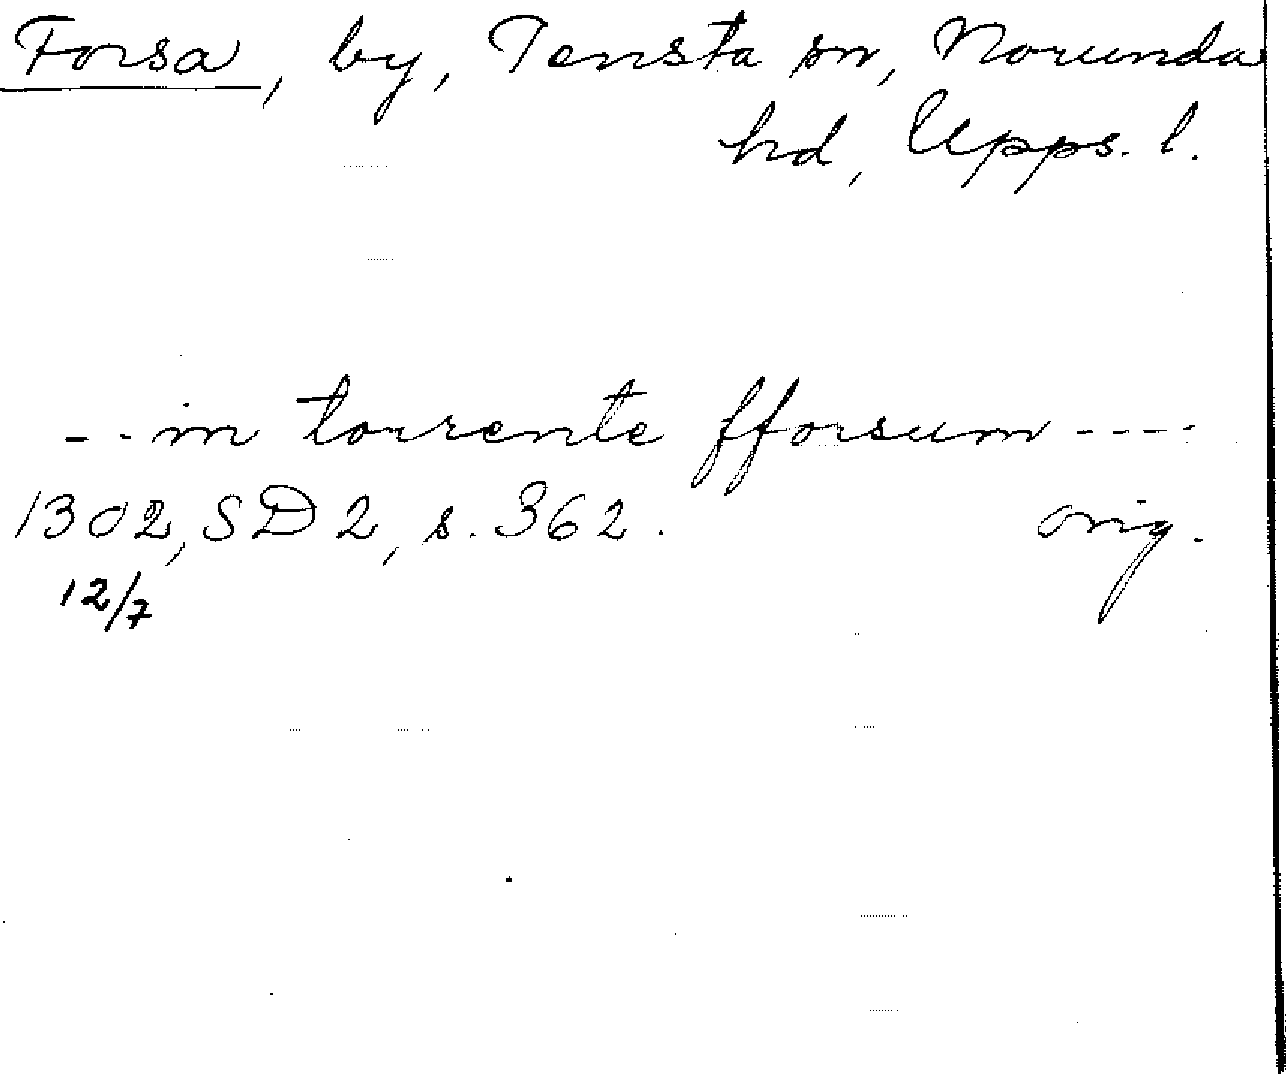 Forsa, by, Tensta sn, Norunda
hd, Upps. l.
-- in torrente fforsum ----
1302, SD 2, s. 362. orig.
12/7